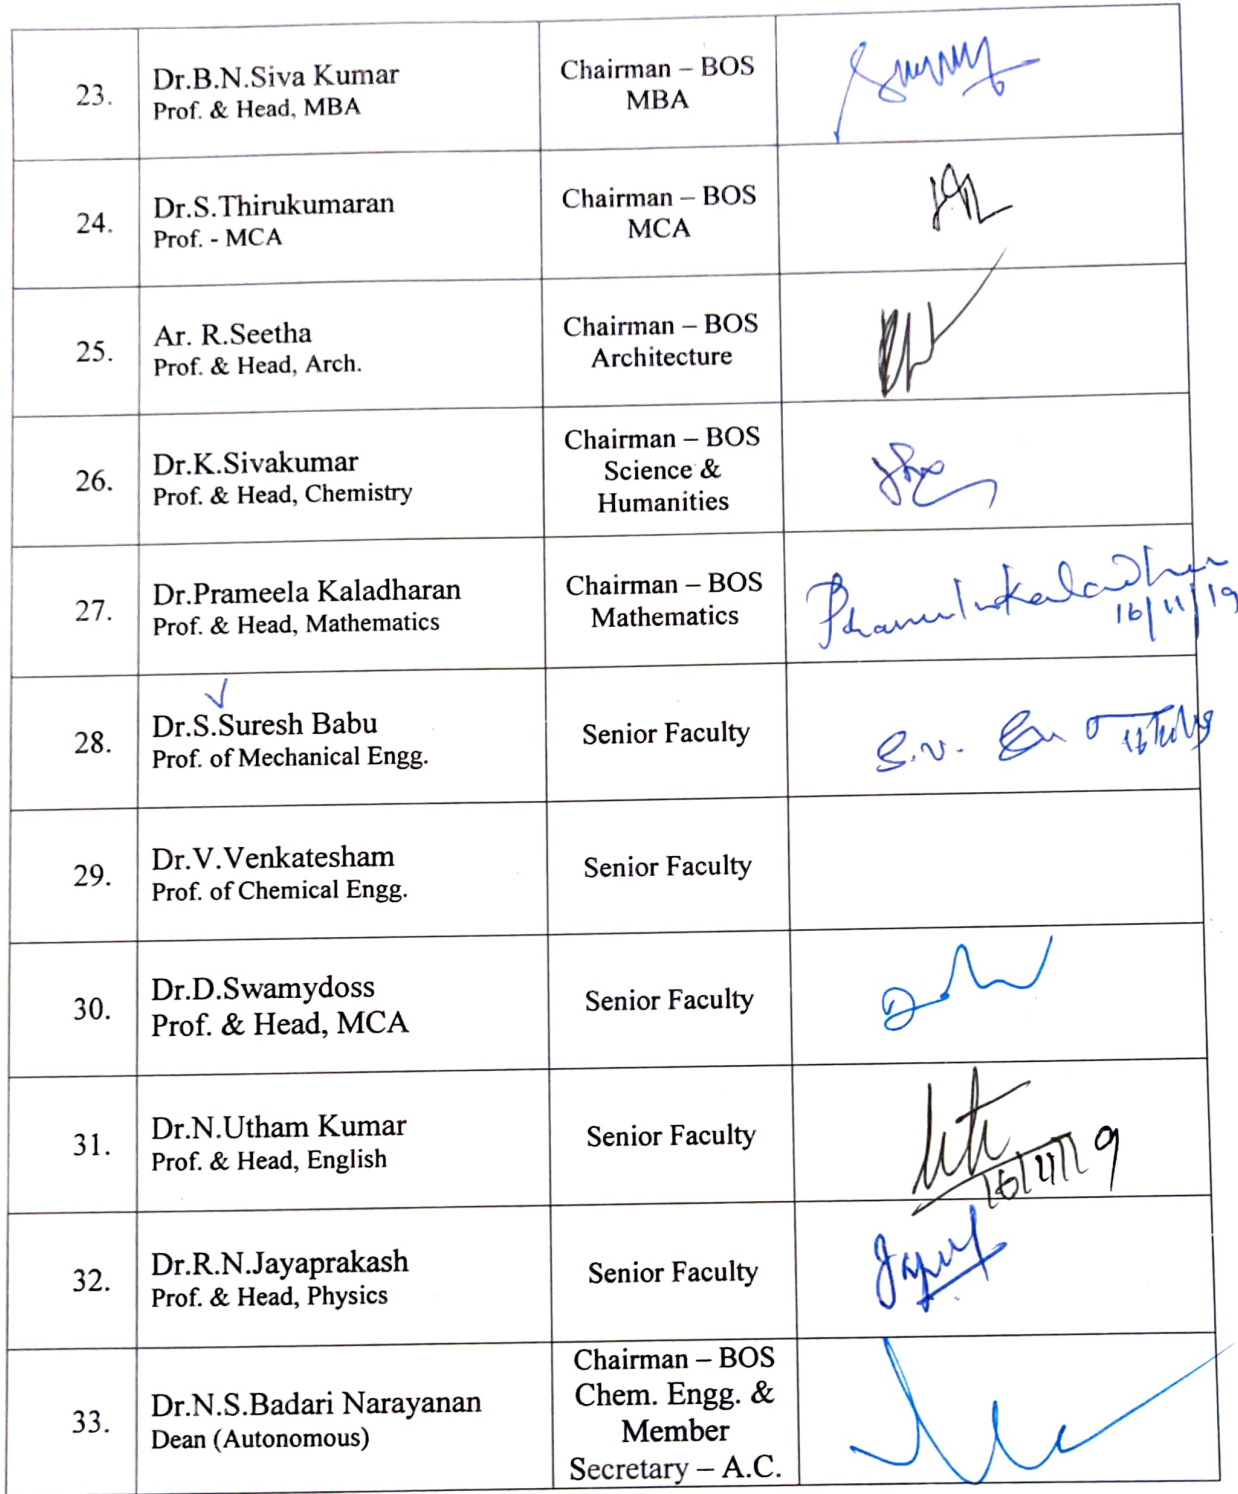 23.
Dr.B.N.Siva Kumar
Prof. & Head, MBA
Chairman – BOS
MBA
24.
Dr.S.Thirukumaran
Prof. - MCA
Chairman – BOS
MCA
25.
Ar. R.Seetha
Prof. & Head, Arch.
Chairman – BOS
Architecture
26.
Dr.K.Sivakumar
Prof. & Head, Chemistry
Chairman – BOS
Science &
Humanities
27.
Dr.Prameela Kaladharan
Prof. & Head, Mathematics
Chairman – BOS
Mathematics
16/11/19
28.
Dr.S.Suresh Babu
Prof. of Mechanical Engg.
Senior Faculty
S.V.
29.
Dr.V.Venkatesham
Prof. of Chemical Engg.
Senior Faculty
30.
Dr.D.Swamydoss
Prof. & Head, MCA
Senior Faculty
31.
Dr.N.Utham Kumar
Prof. & Head, English
Senior Faculty
16/11/19
32.
Dr.R.N.Jayaprakash
Prof. & Head, Physics
Senior Faculty
33.
Dr.N.S.Badari Narayanan
Dean (Autonomous)
Chairman – BOS
Chem. Engg. &
Member
Secretary – A.C.